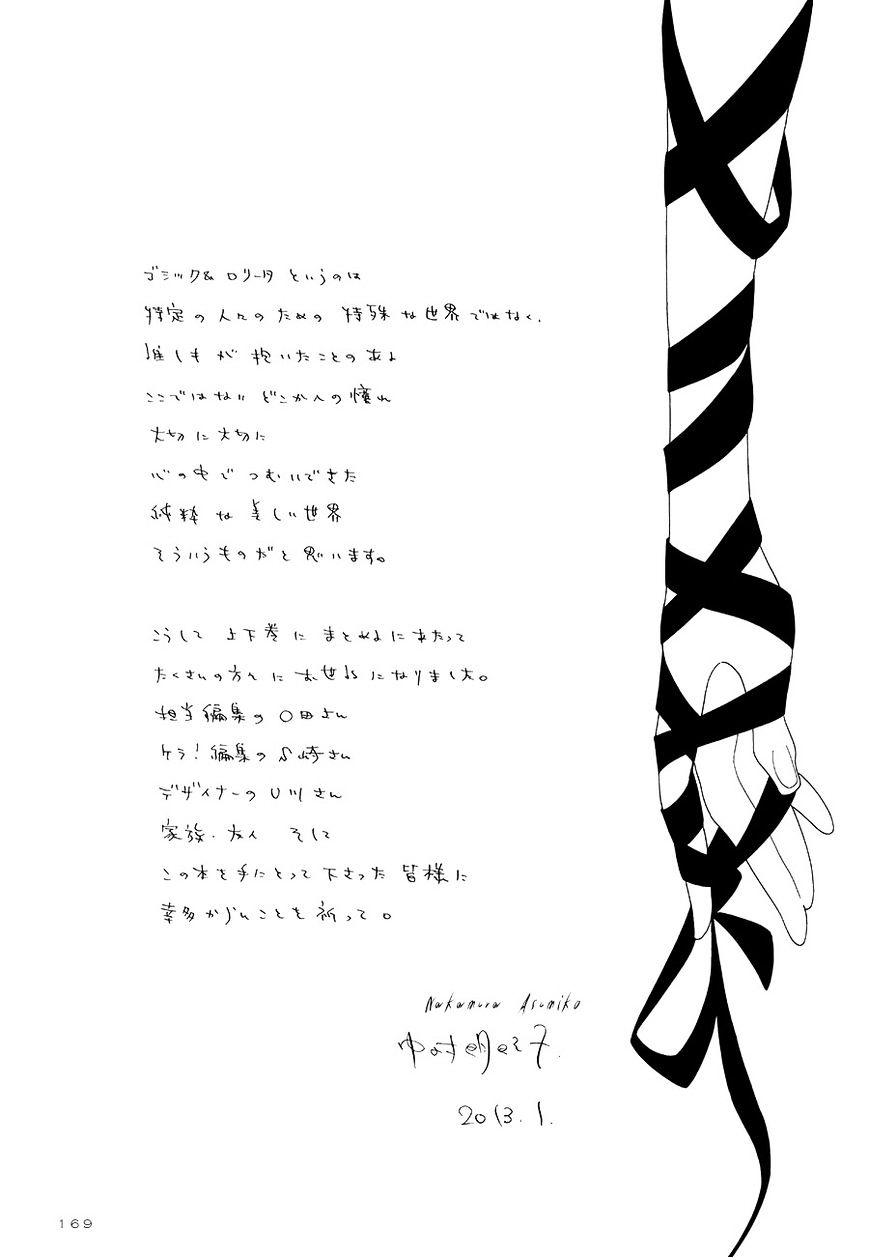 ゴシック&ロリータというのは
特定の人々のための 特殊な世界ではなく、
誰しもが 抱いたことのある
ここではない どこかへの憧れ
大切に大切に
心の中で つむいできた
純粋な 美しい世界
そういうものだと思います。
こうして 上下巻に まとめるにあたって
たくさんの方々に お世話になりました。
担当編集の〇田さん
ケラ!編集の 崎さん
デザイナーのU川さん
家族・友人 そして
この本を手にとって下さった 皆様に
幸多からんことを祈って。
Nakamura Asumiko
中村明日美子
2013.1.
169